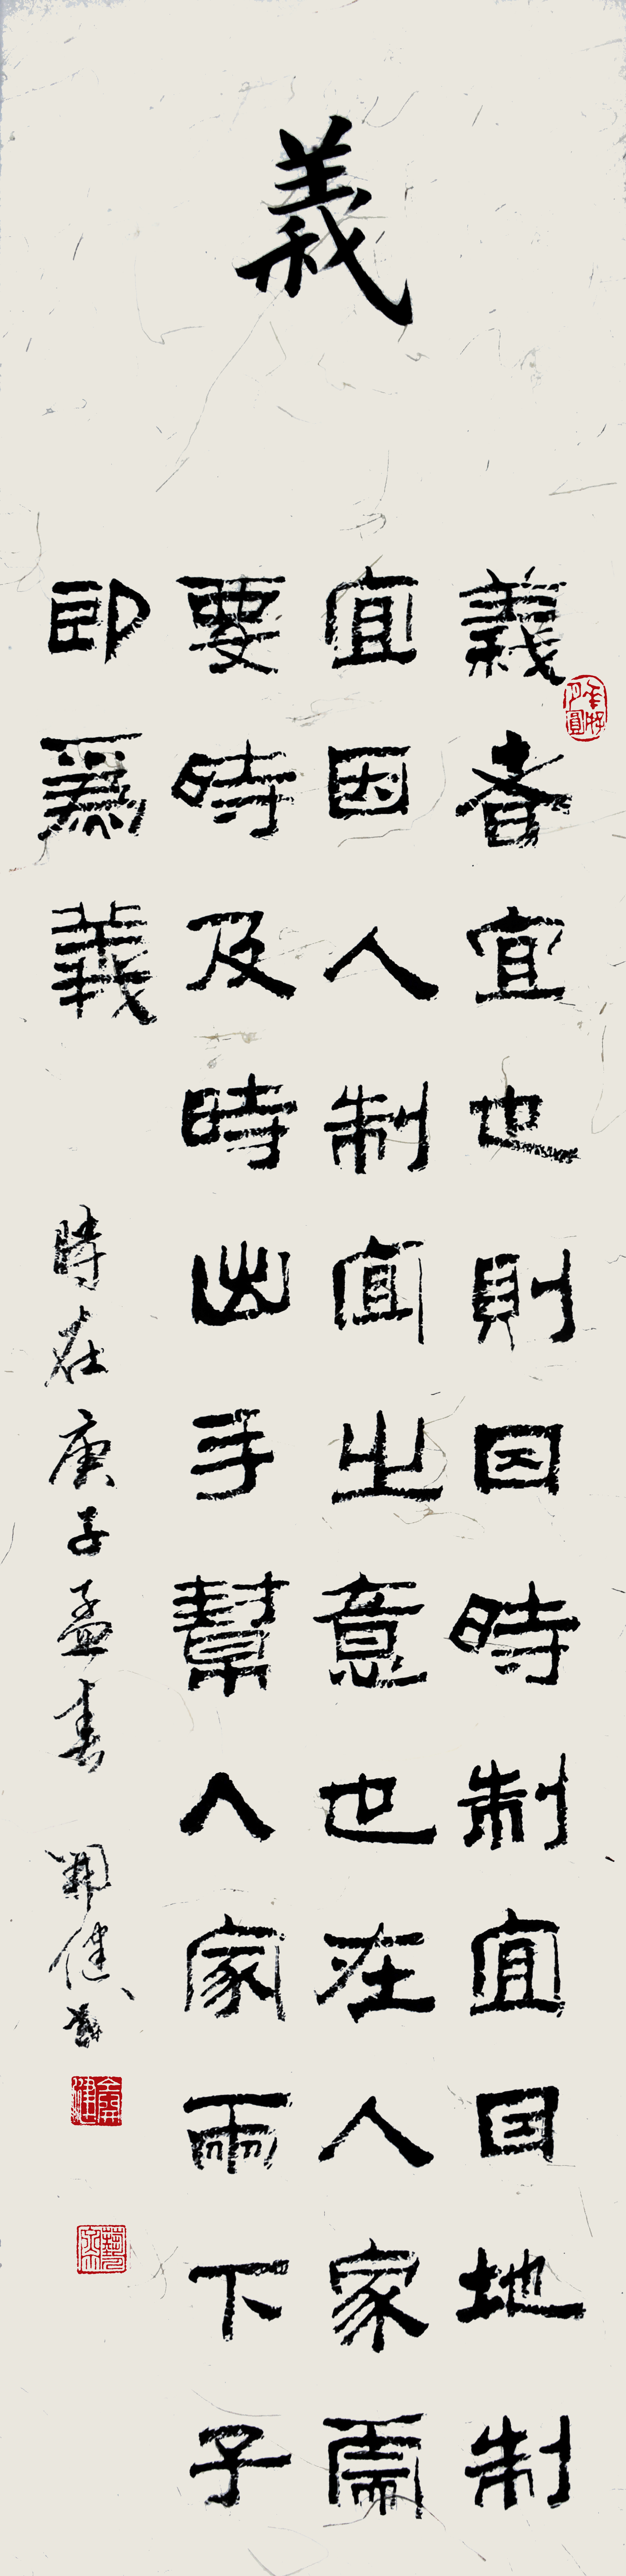 義
義者宜也則因時制宜因地制
宜因人制宜之意也在人家需
要時及時出手幫人家兩下子
即爲義
時在庚子孟春 開健書